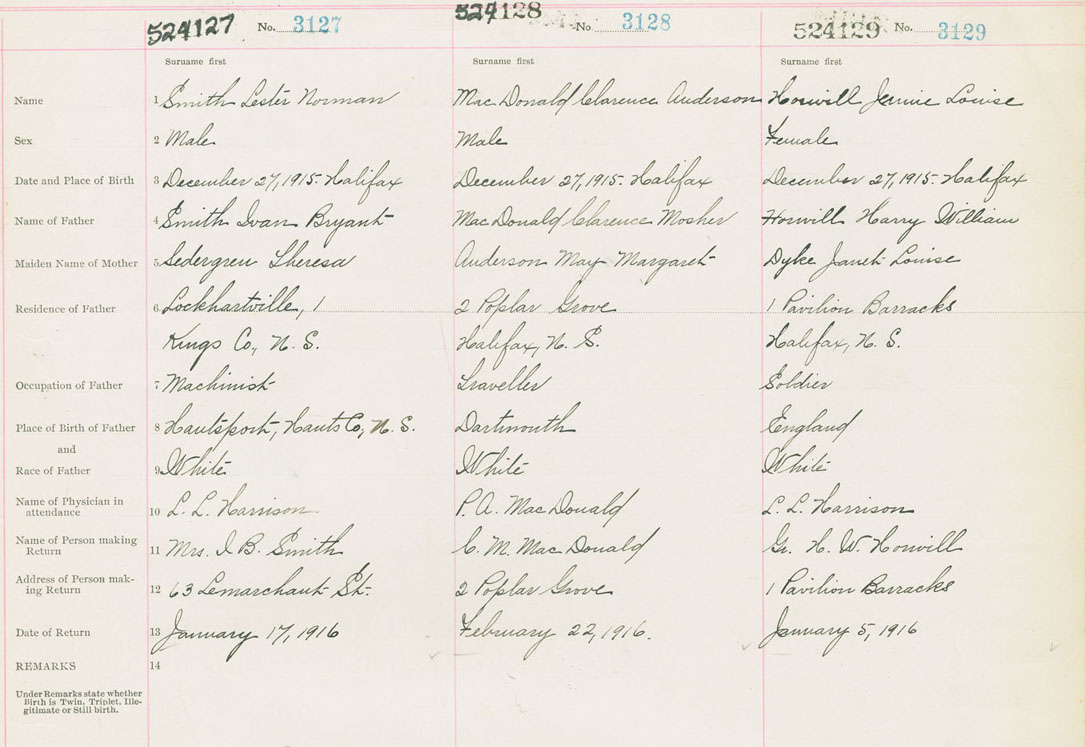 524127 No. 3127 524128 No. 3128 524129 No. 3129
Surname first Surname first Surname first
Name 1 Smith Lester Norman MacDonald Clarence Anderson Horwill Jennie Louise
Sex 2 Male Male Female
Date and Place of Birth 3 December 27, 1915. Halifax December 27, 1915. Halifax December 27, 1915. Halifax
Name of Father 4 Smith Ivan Bryant MacDonald Clarence Mosher Horwill Harry William
Maiden Name of Mother 5 Sedergren Theresa Anderson May Margaret Dyke Janet Louise
Residence of Father 6 Lockhartville, 1 2 Poplar Grove 1 Pavilion Barracks
Kings Co, N. S. Halifax, N. S. Halifax, N. S.
Occupation of Father 7 Machinist Traveller Soldier
Place of Birth of Father 8 Hantsport, Hants Co, N. S. Dartmouth England
and
Race of Father 9 White White White
Name of Physician in
attendance 10 L. L. Harrison P. A. MacDonald L. L. Harrison
Name of Person making
Return 11 Mrs. I. B. Smith C. M. MacDonald Gr. H. W. Horwill
Address of Person mak-
ing Return 12 63 Lemarchant St. 2 Poplar Grove 1 Pavilion Barracks
Date of Return 13 January 17, 1916 February 22, 1916. January 5, 1916
REMARKS 14
Under Remarks state whether
Birth is Twin, Triplet, Ille-
gitimate or Still birth.